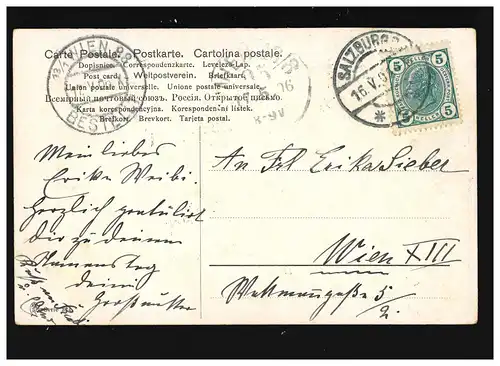 Carte Postale. Postkarte. Cartolina postale.
Dopisnice. Correspondenzkarte. Levelezö-Lap.
Post card. Weltpostverein. Briefkaart.
Union postale universelle. Unione postale universale.
Всемірный почтовый союзъ. Россія. Открытое письмо.
Karta korespondencyjna. Korespondenční lístek.
Brefkort. Brevkort. Tarjeta postal.
WIEN
BESTELLT
SALZBURG
16.V.
5 5
HELLER
5 5
Mein liebes
Erika Weibi.
Herzlich gratulirt
dir zu deinem
Namenstag
deine
Großmutter
An Frl Erika Sieber
Wien XIII
5/2.